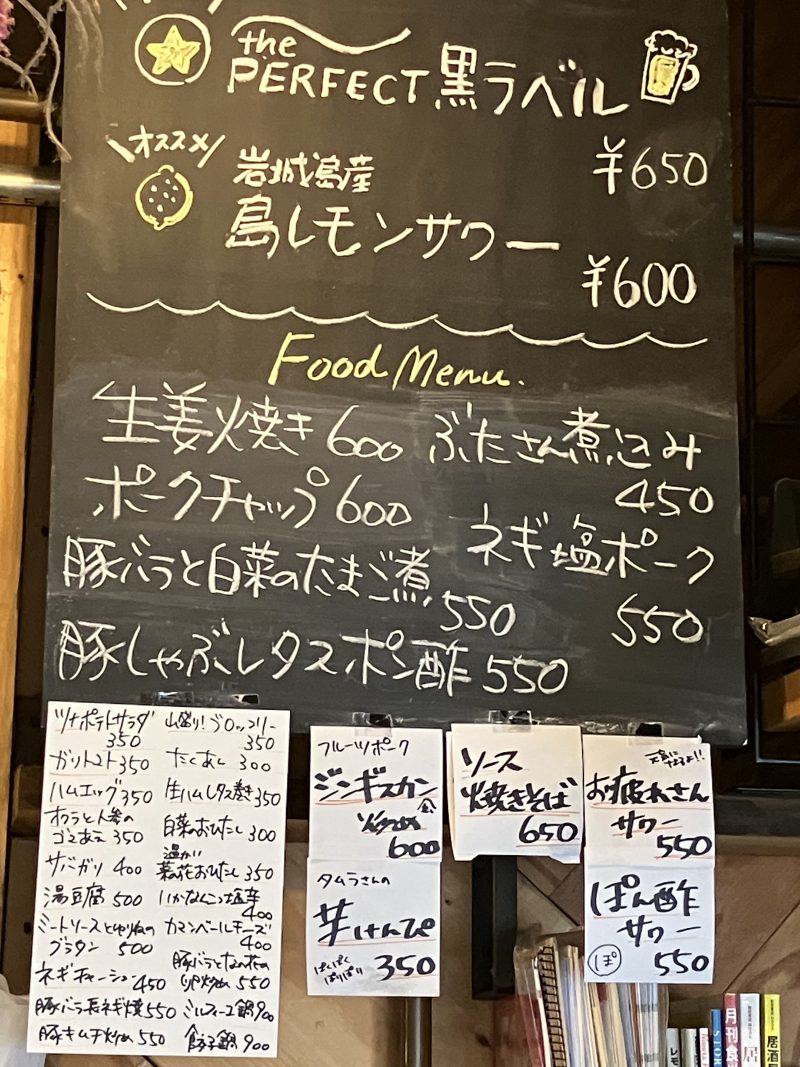 the
PERFECT 黒ラベル
¥650
オススメ
岩城島産
島レモンサワー
¥600
Food Menu.
生姜焼き 600
ぶたさん煮込み
450
ポークチャップ 600
ネギ塩ポーク
550
豚バラと白菜のたまご煮
550
豚しゃぶレタスポン酢 550
ツナポテトサラダ
350
ガリトマト 350
ハムエッグ 350
オクラと人参の
ゴマあえ 350
サバガリ 400
湯豆腐 500
ミートソースとゆりねの
グラタン 500
ネギチャーシュー 450
豚バラ長ネギ焼 550
豚キムチ炒め 550
山盛り!ブロッコリー
350
たくあん 300
生ハムレタス巻き 350
白菜のおひたし 300
温かい
菜の花おひたし 350
いかなんこつ塩辛
400
カマンベールチーズ
400
豚バラとなの花の
卵炒め 550
ミルフィーユ鍋 900
餃子鍋 900
フルーツポーク
ジンギスカン
炒め
600
タムラさんの
芋けんぴ
ぱくぱく
ぱりぱり
350
ソース
焼きそば
650
元気になるよ!!
お疲れさん
サワー
550
ぽん酢
サワー
ぽ
550
月刊食
居
居酒